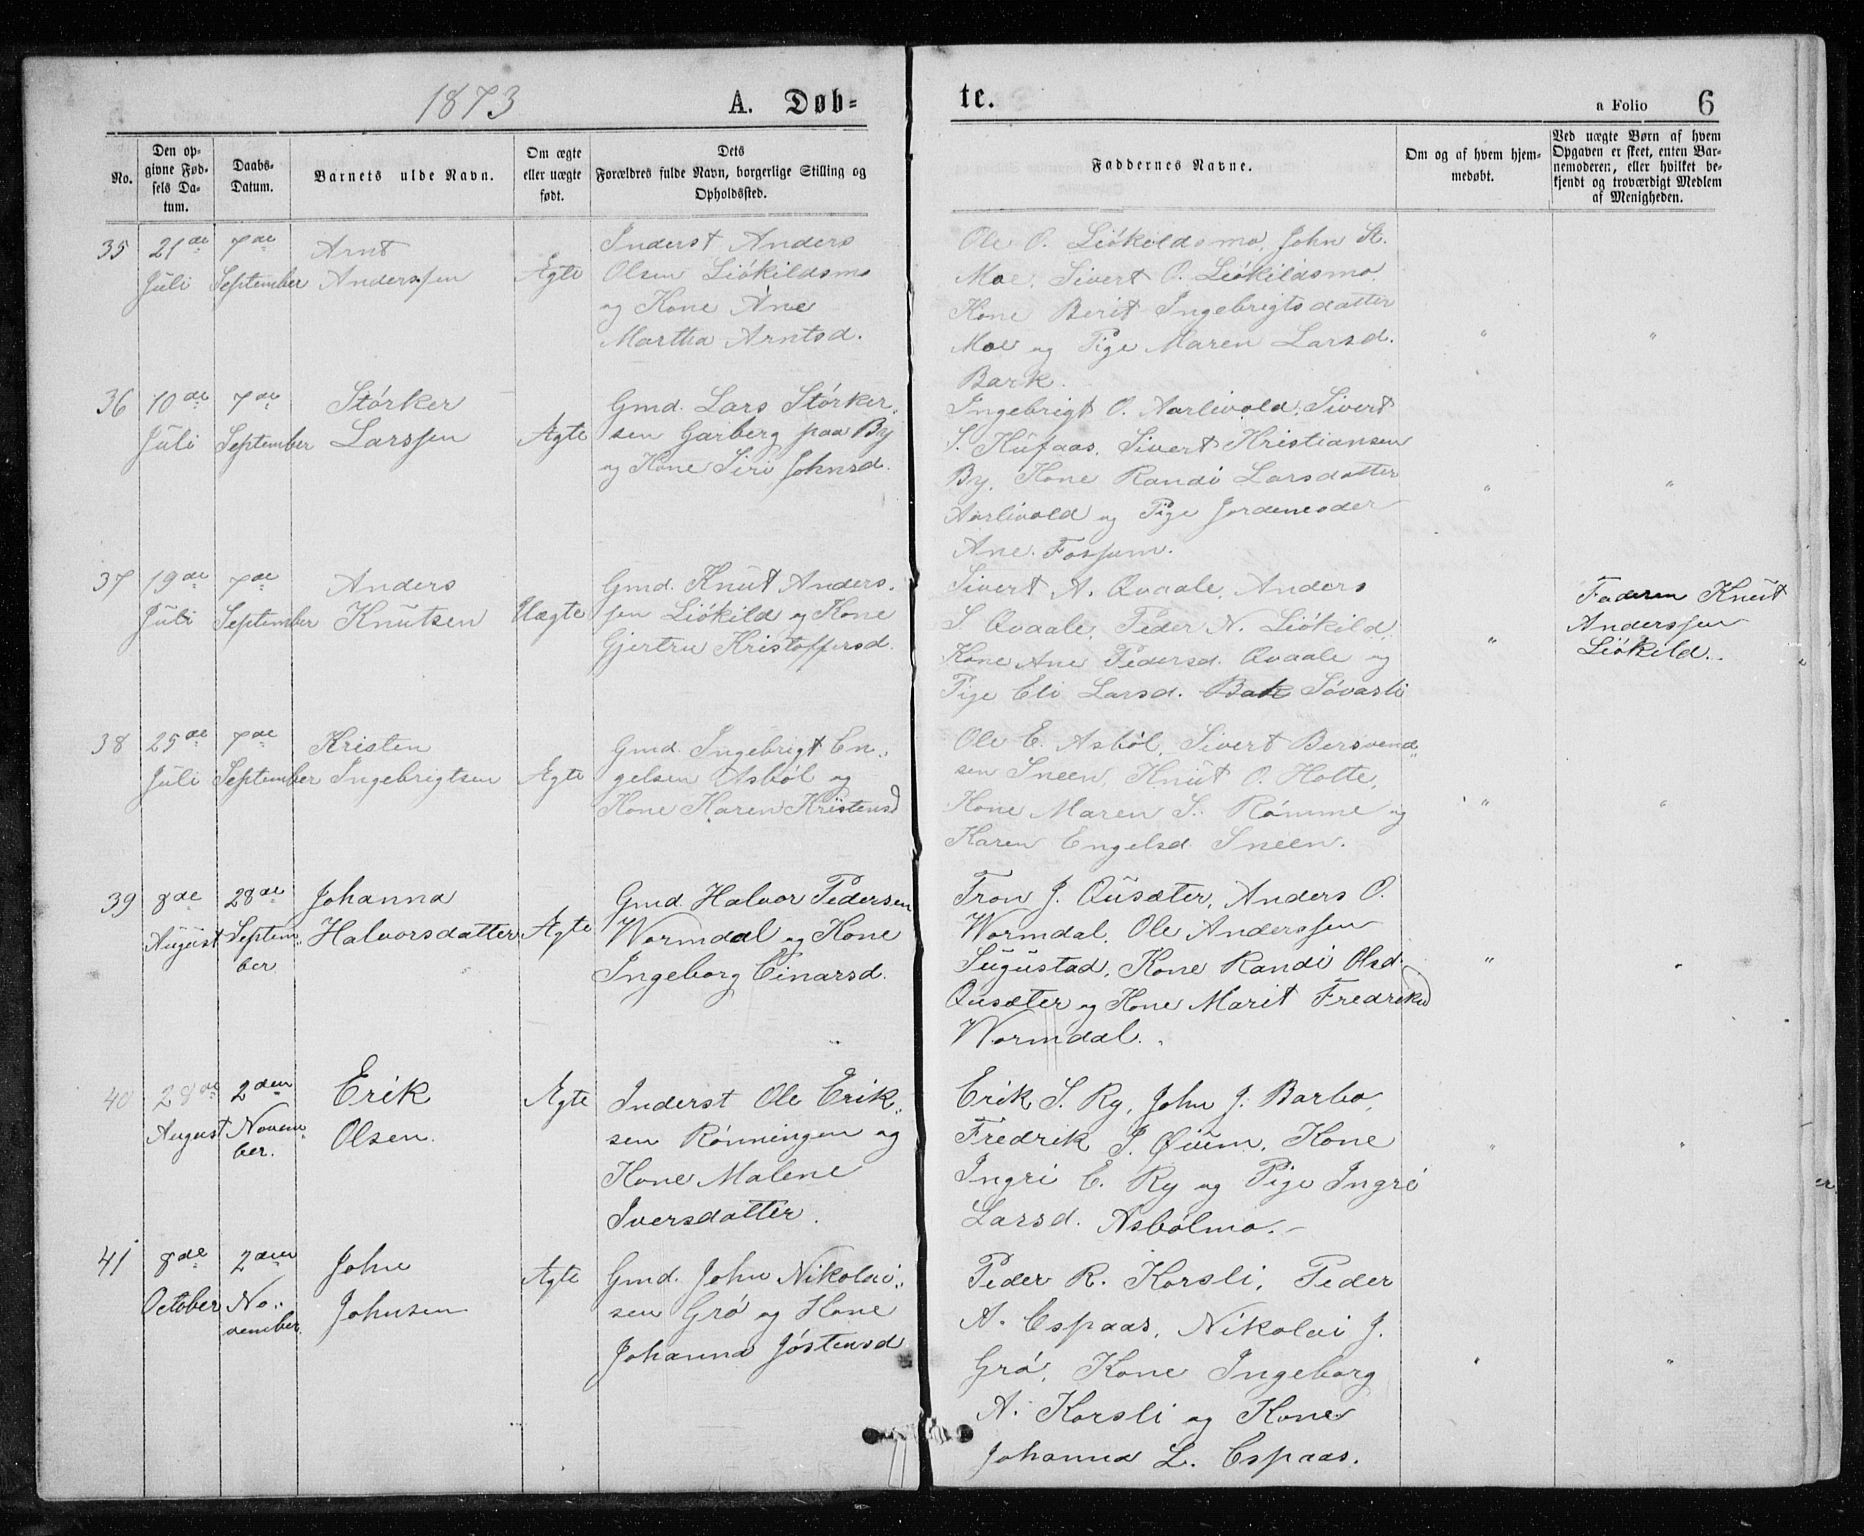 1873
A. Døb-
te.
a Folio 6
No.
Den op-
givne Fød-
sels Da-
tum.
Daabs-
Datum.
Barnets ulde Navn.
Om ægte
eller uægte
født.
Dets
Forældres fulde Navn, borgerlige Stilling og
Opholdssted.
Faddernes Navne.
Om og af hvem hjem-
medøbt.
Ved uægte Børn af hvem
Opgaven er skeet, enten Bar-
nemoderen, eller hvilket be-
kjendt og troværdigt Medlem
af Menigheden.
35
21de
Juli
7de
September
Arnt
Anderssen
Ægte
Inderst Anders
Olsen Liökildsmo
og Kone Ane
Martha Arntsd.
Ole O. Liökildsmo, John St.
Moe, Sivert O. Liökildsmo
Kone Berit Ingebrigtsdatter
Moe og Pige Maren Larsd.
Bark.
"
"
36
10de
Juli
7de
September
Störker
Larssen
Ægte
Gmd. Lars Störker-
sen Garberg paa By
og Kone Siri Johnsd.
Ingebrigt O. Aarlivold, Sivert
S. Hufaas, Sivert Kristiansen
By, Kone Randi Larsdatter
Aarlivold og Pige Jordemoder
Ane Fossum.
"
"
37
19de
Juli
7de
September
Anders
Knutsen
Uægte
Gmd. Knut Anders-
sen Liökild og Kone
Gjertru Kristoffersd.
Sivert A. Qvaale, Anders
S. Qvaale, Peder N. Liökild,
Kone Ane Pedersd. Qvaale og
Pige Eli Larsd. Sövasli
"
Faderen Knut
Anderssen
Liökild.
38
25de
Juli
7de
September
Kristen
Ingebrigtsen
Ægte
Gmd. Ingebrigt En-
gelsen Asböl og
Kone Karen Kristensd
Ole E. Asböl, Sivert Bersvend-
sen Sneen, Knut O. Holte,
Kone Maren S. Römme og
Karen Engelsd. Sneen.
"
"
39
8de
August
28de
Septem-
ber
Johanna
Halvorsdatter
Ægte
Gmd Halvor Pedersen
Wormdal og Kone
Ingeborg Einarsd.
Tron J. Qusæter, Anders O.
Wormdal, Ole Anderssen
Sugustad, Kone Randi Olsd.
Qusæter og Kone Marit Fredriksd
Wormdal.
"
"
40
28de
August
2den
Novem-
ber.
Erik
Olsen.
Ægte
Inderst Ole Erik-
sen Rönningen og
Kone Malene
Iversdatter.
Erik S. Ry, John J. Barbo,
Fredrik I. Øium, Kone
Ingri E. Ry og Pige Ingri
Larsd. Asbölmo.
"
"
41
8de
October
2den
No-
vember.
John
Johnsen
Ægte
Gmd. John Nikolai-
sen Grö og Kone
Johanna Jöstensd
Peder R. Korsli, Peder
A. Espaas, Nikolai J.
Grö, Kone Ingeborg
A. Korsli og Kone
Johanna L. Espaas.
"
"